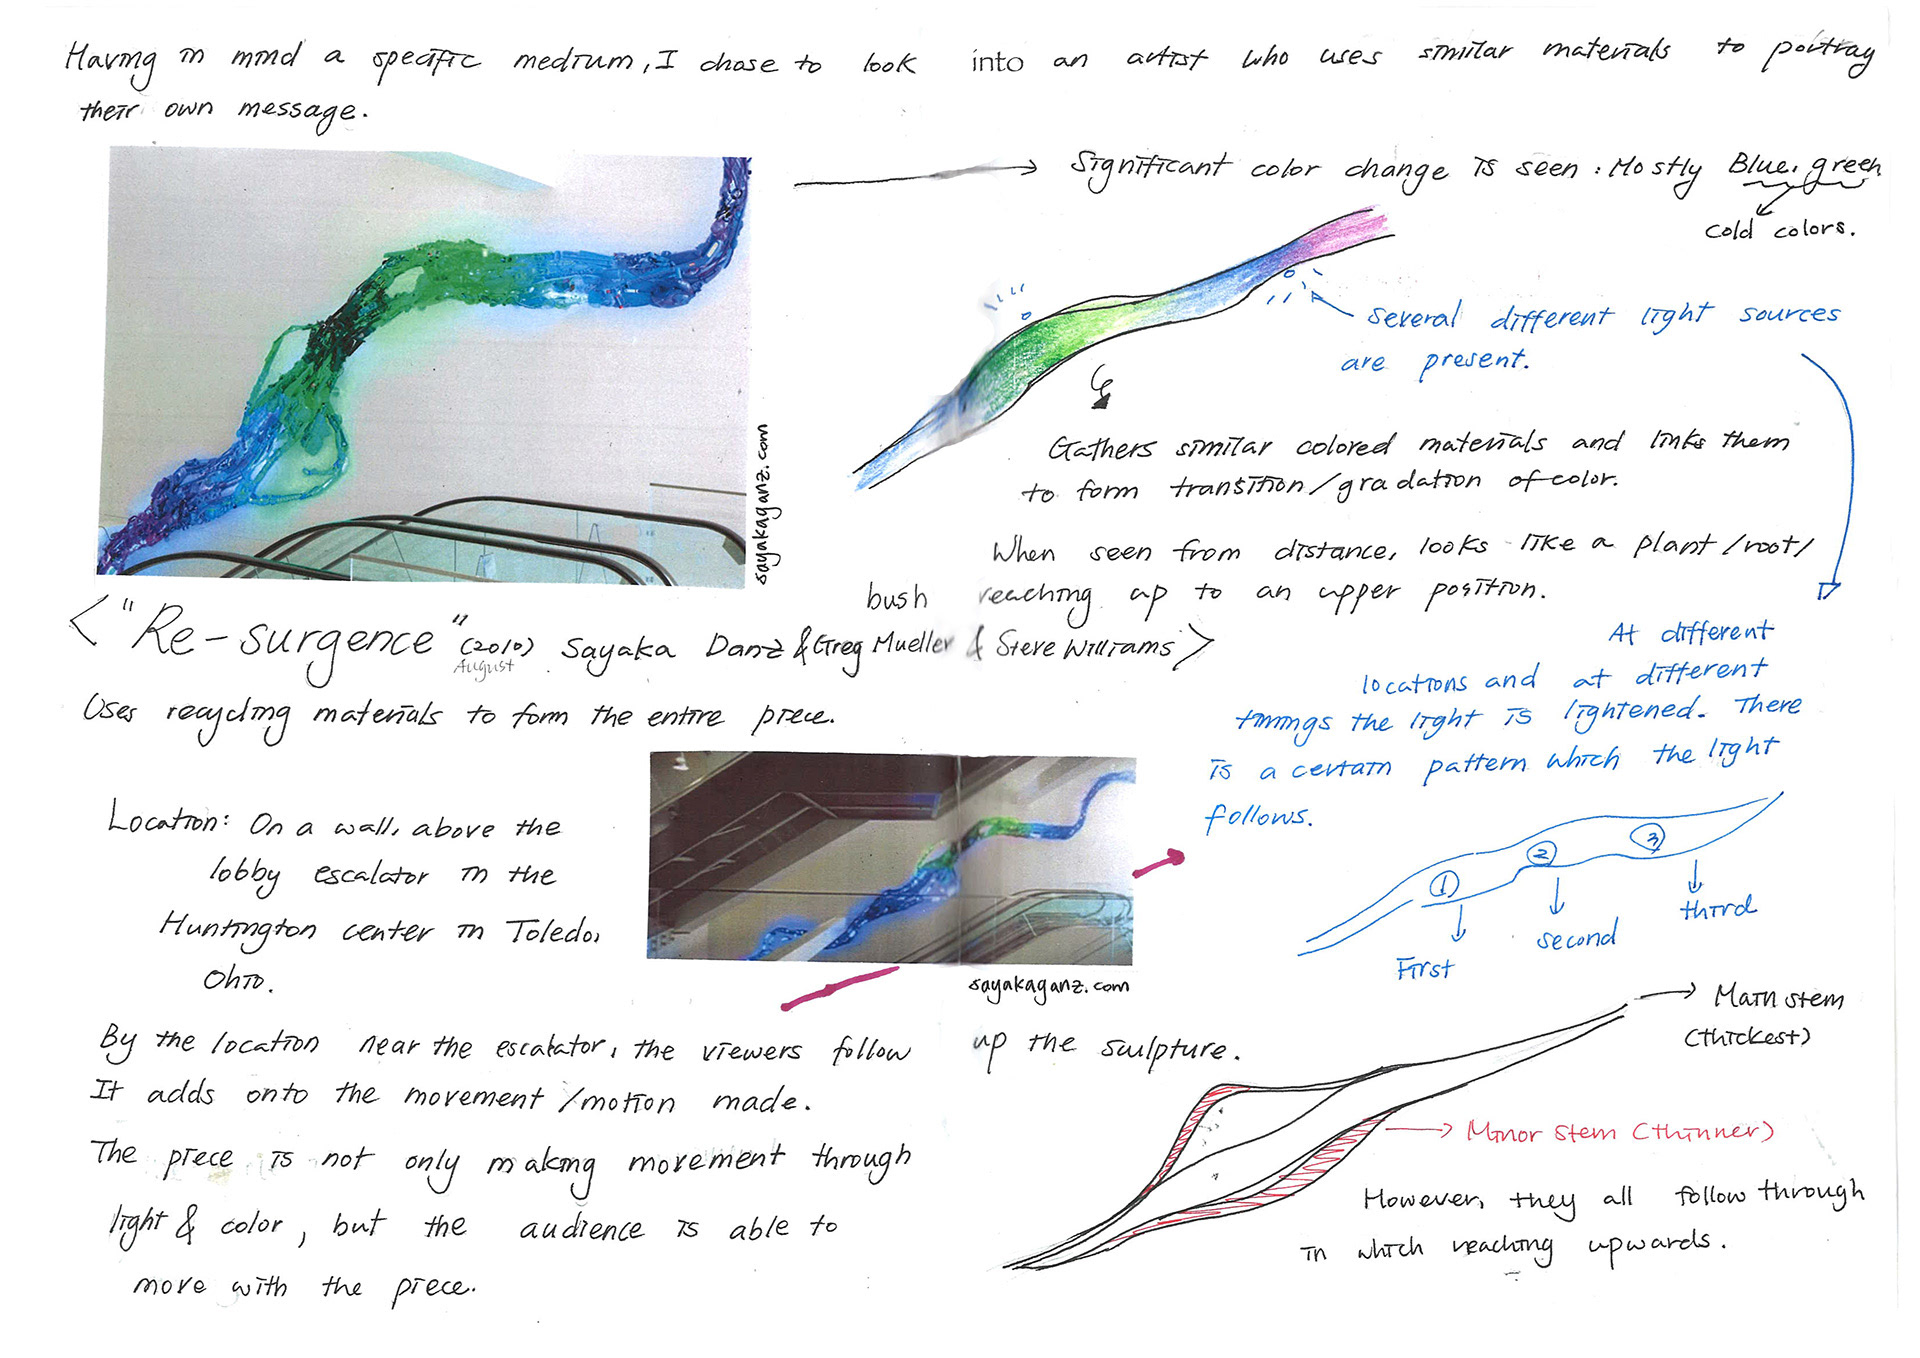 Having in mind a specific medium, I chose to look into an artist who uses similar materials to portray
their own message.
Significant color change is seen : Mostly Blue, green
cold colors.
several different light sources
are present.
sayakaganz.com
Gathers similar colored materials and links them
to form transition/gradation of color.
When seen from distance, looks like a plant/root/
bush reaching up to an upper position.
<"Re-surgence" (2010) Sayaka Danz & Greg Mueller & Steve Williams>
August
Uses recycling materials to form the entire piece.
At different
locations and at different
timings the light is lightened. There
is a certain pattern which the light
follows.
1 2 3
First second third
Location: On a wall, above the
lobby escalator in the
Huntington center in Toledo,
Ohio.
sayakaganz.com
By the location near the escalator, the viewers follow up the sculpture.
It adds onto the movement/motion made.
The piece is not only making movement through
light & color, but the audience is able to
move with the piece.
Main stem
(thickest)
Minor stem (thinner)
However, they all follow through
in which reaching upwards.